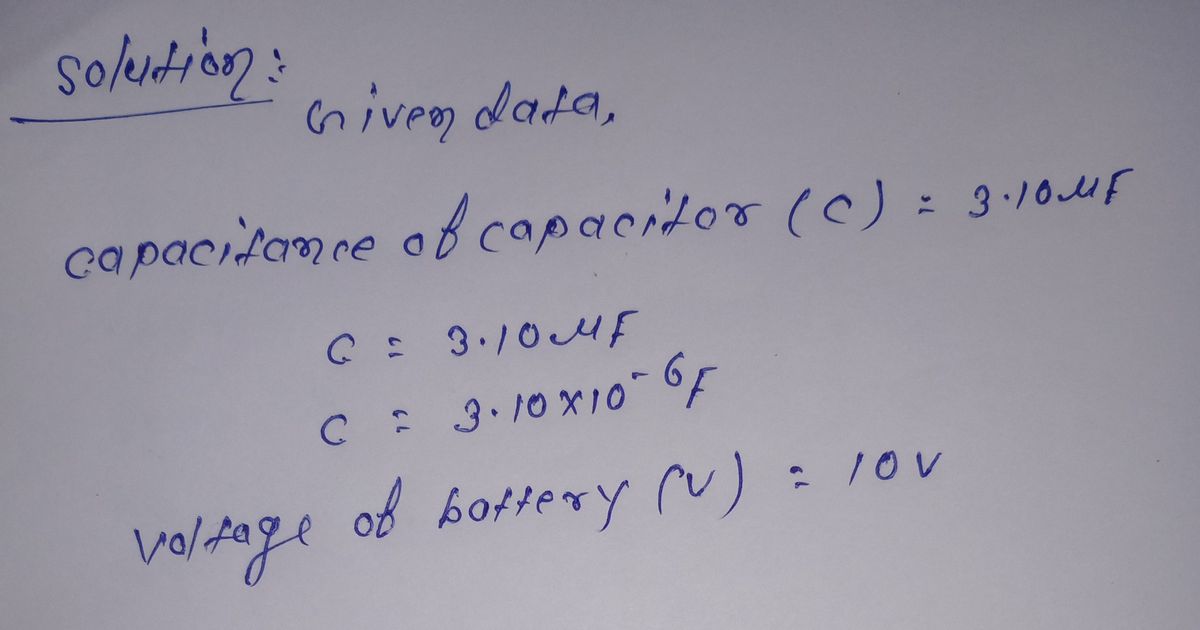 Solution:
Given data,
capacitance of capacitor (C) = 3.10 μF
C = 3.10 μF
C = 3.10 × 10⁻⁶ F
Voltage of battery (V) = 10 V